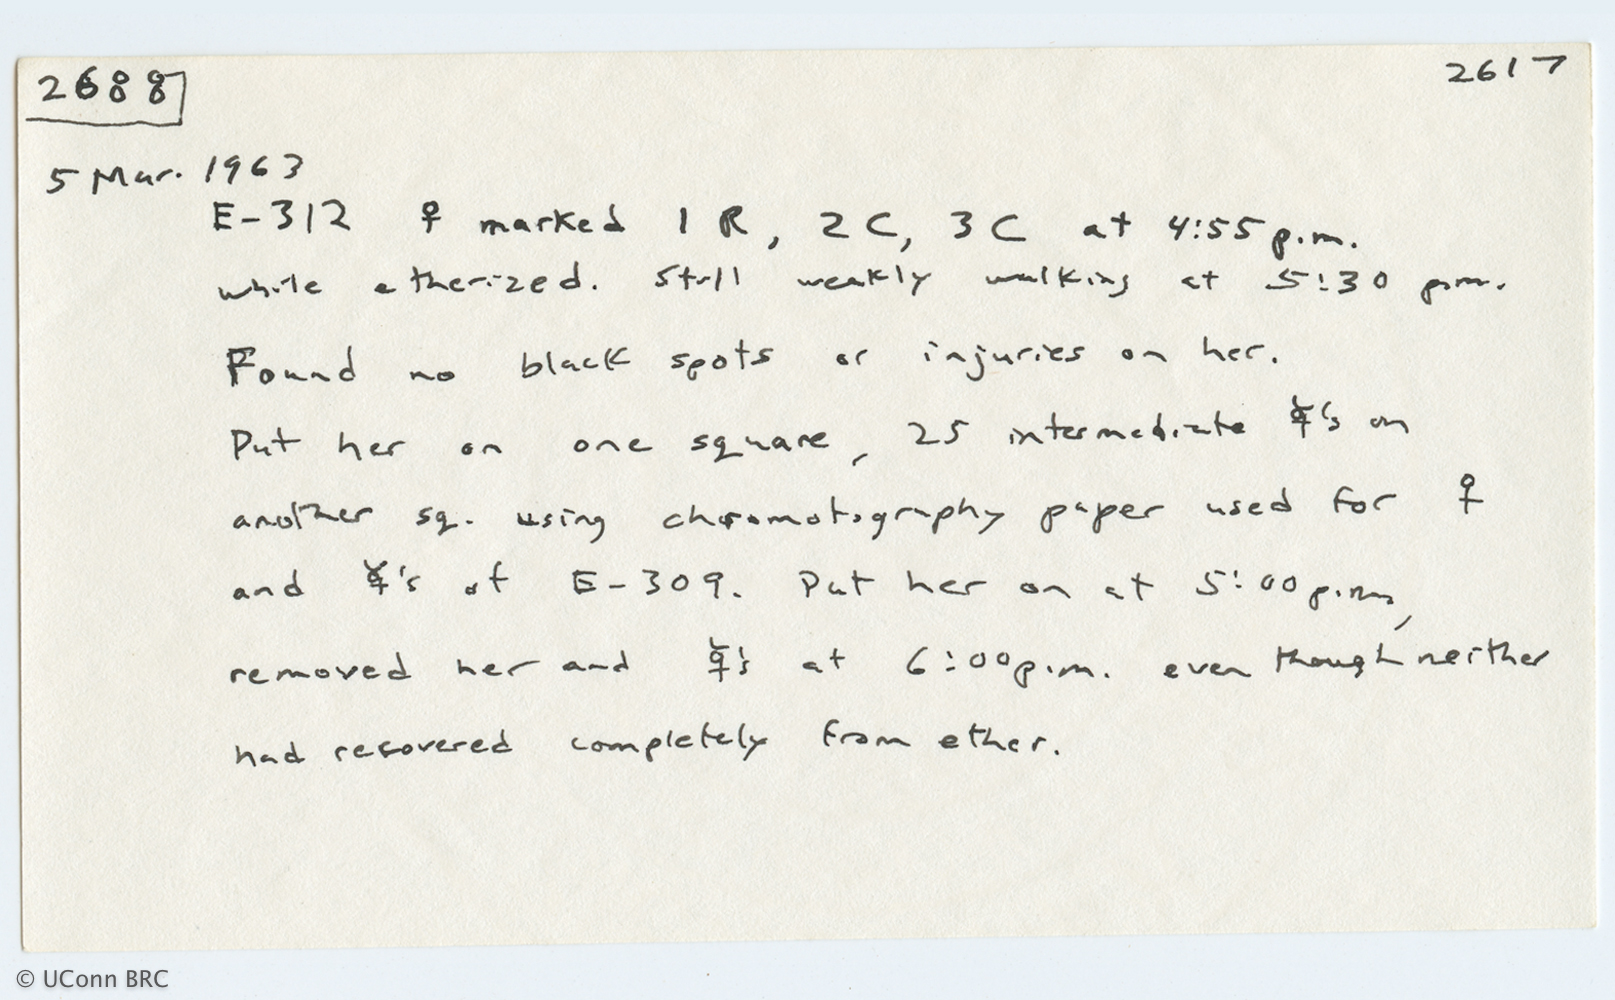 2688 2617
5 Mar. 1963
E-312 ♀ marked 1 R, 2 C, 3 C at 4:55 p.m.
while etherized. Still weakly walking at 5:30 p.m.
Found no black spots or injuries on her.
Put her on one square, 25 intermediate ☿'s on
another sq. using chromotography paper used for ♀
and ☿'s of E-309. Put her on at 5:00 p.m.,
removed her and ☿'s at 6:00 p.m. even though neither
had recovered completely from ether.
© UConn BRC